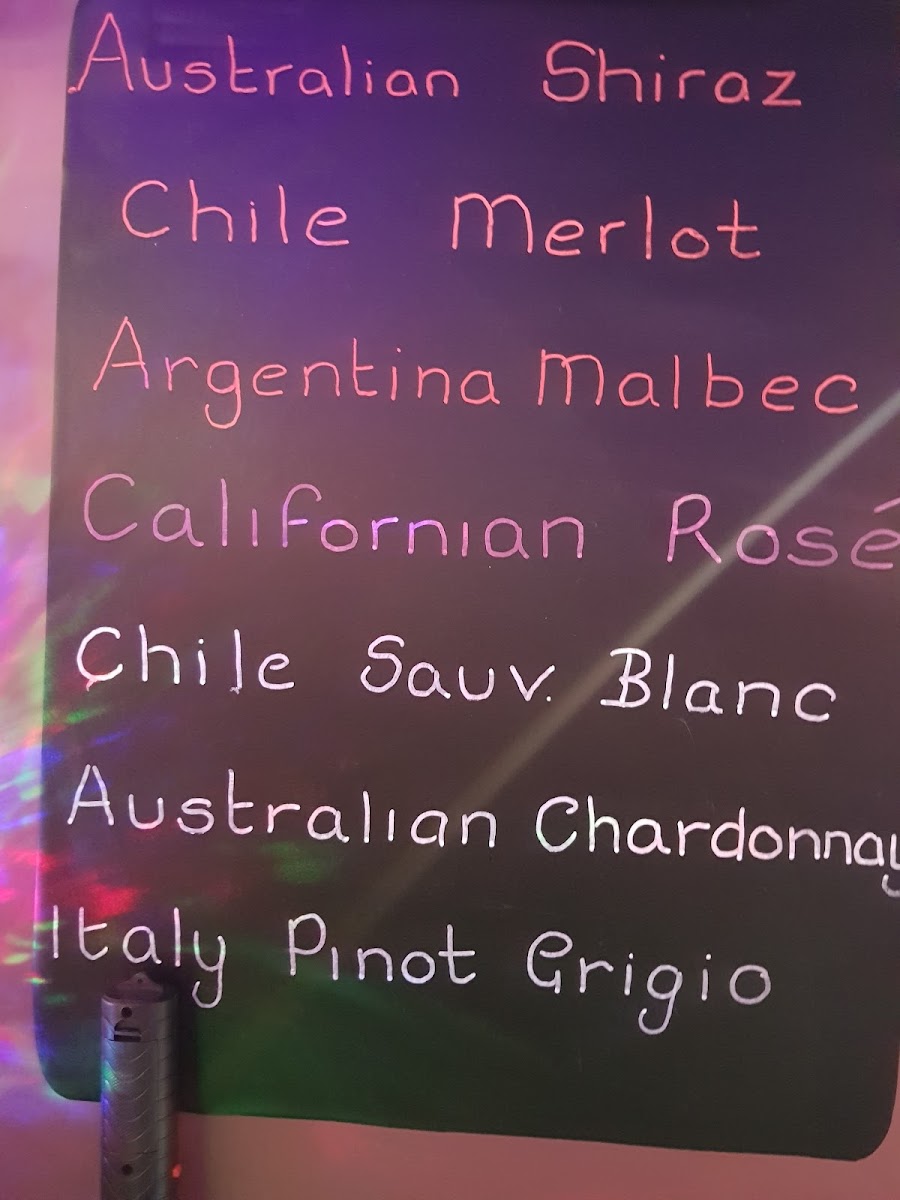 Australian Shiraz
Chile Merlot
Argentina Malbec
Californian Rosé
Chile Sauv. Blanc
Australian Chardonnay
Italy Pinot Grigio